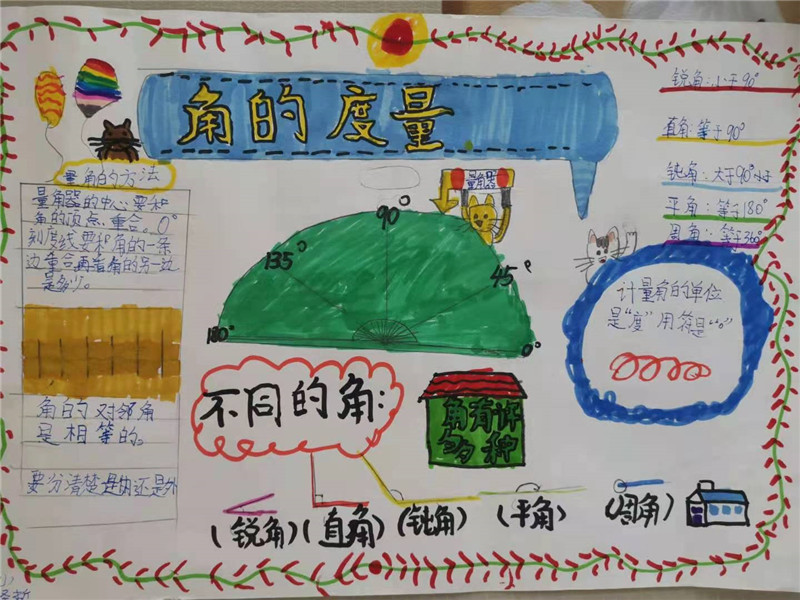 角的度量
锐角:小于90°
直角:等于90°
钝角:大于90°小于
平角:等于180°
周角:等于360°
量角的方法
量角器的中心要和
角的顶点重合。0°
刻度线要和角的一条
边重合再看角的另一边
是多少。
角的对邻角
是相等的。
要分清楚是内还是外
量角器
90°
135°
45°
180°
0°
计量角的单位
是“度”用符是“°”
不同的角:
角有许
多种
(锐角)(直角)(钝角)(平角)(周角)